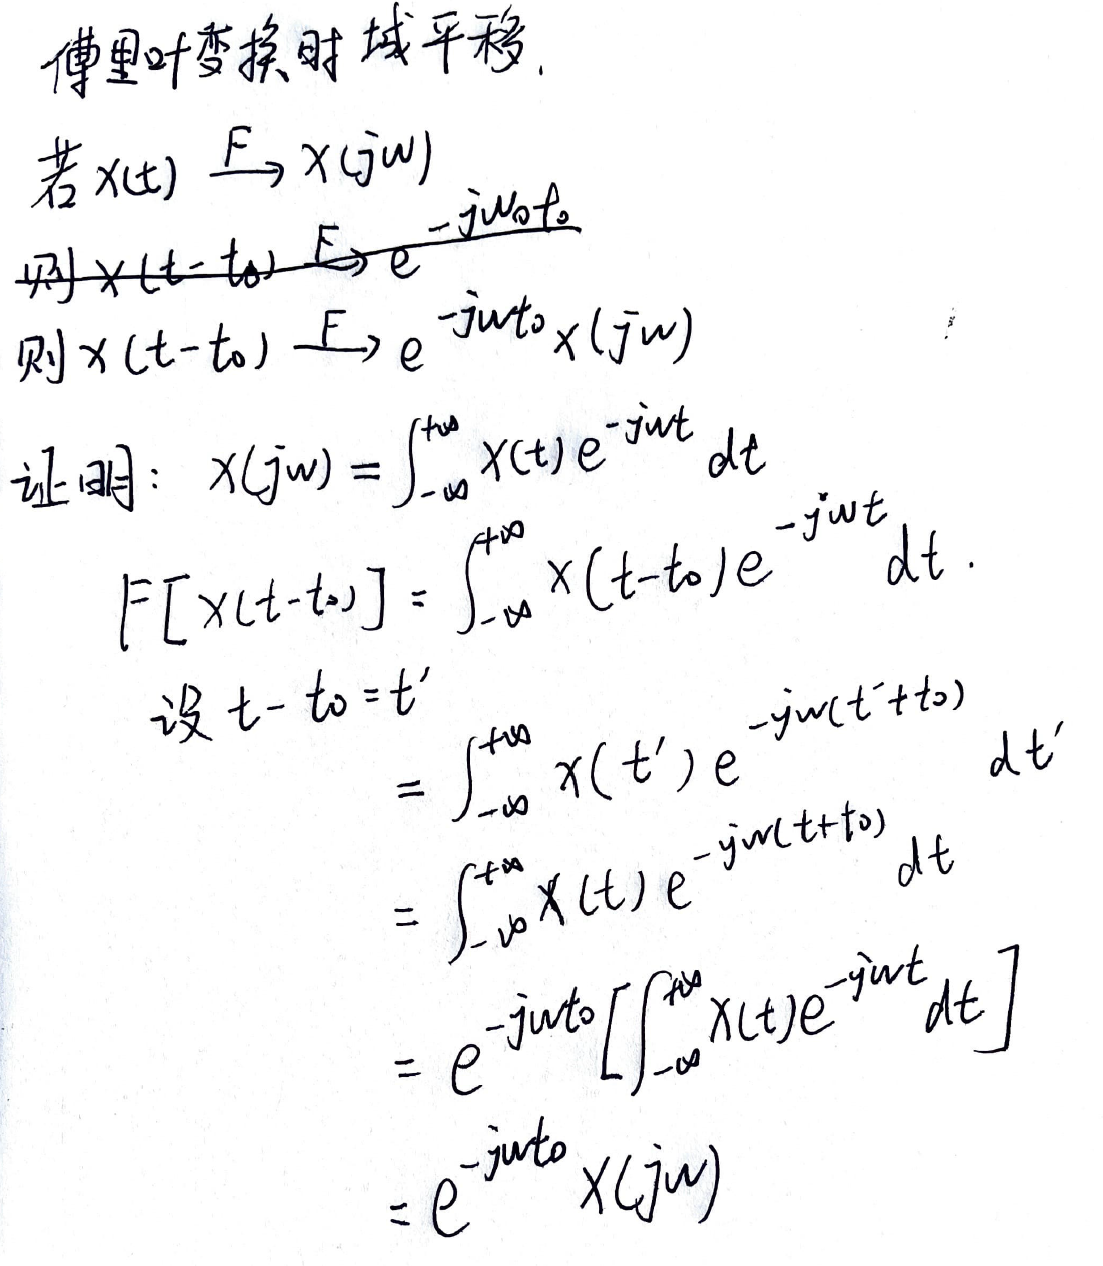 傅里叶变换时域平移.
若 x(t) —F→ X(jw)
则 x(t-t₀) —F→ e^{-jw₀t₀}
则 x(t-t₀) —F→ e^{-jwt₀} X(jw)
证明: X(jw) = ∫_{-∞}^{+∞} x(t) e^{-jwt} dt
F[x(t-t₀)] = ∫_{-∞}^{+∞} x(t-t₀) e^{-jwt} dt.
设 t-t₀=t′
= ∫_{-∞}^{+∞} x(t′) e^{-jw(t′+t₀)} dt′
= ∫_{-∞}^{+∞} x(t) e^{-jw(t+t₀)} dt
= e^{-jwt₀} [∫_{-∞}^{+∞} x(t) e^{-jwt} dt]
= e^{-jwt₀} X(jw)